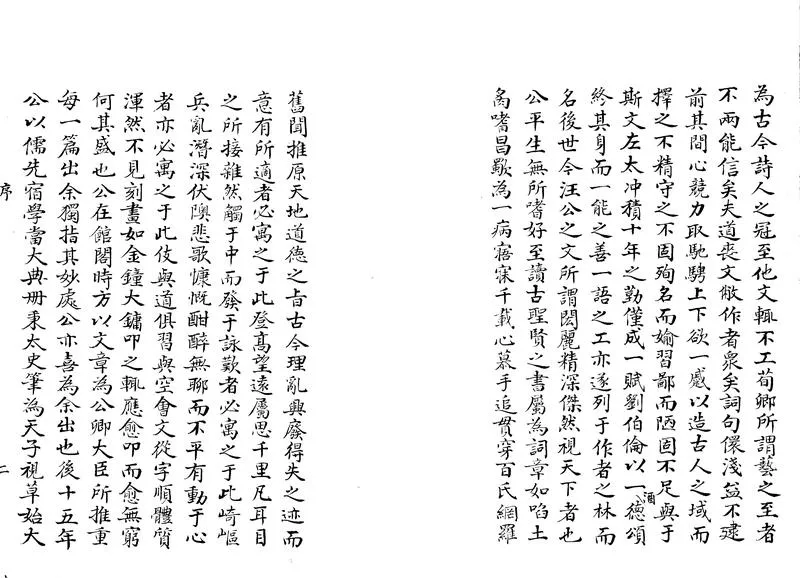 為古今詩人之冠至他文輒不工荀卿所謂藝之至者
不兩能信矣夫道喪文敝作者衆矣詞句儇淺益不逮
前其間心競力取馳騁上下欲一蹴以造古人之域而
擇之不精守之不固殉名而媮習鄙而陋固不足與于
斯文左太冲積十年之勤僅成一賦劉伯倫以一酒德頌
終其身而一能之善一語之工亦遂列于作者之林而
名後世今汪公之文所謂閎麗精深傑然視天下者也
公平生無所嗜好至讀古聖賢之書屬為詞章如䧟土
炱嗜昌歜為一病寤寐千載心慕手追貫穿百氏網羅
舊聞推原天地道德之旨古今理亂興廢得失之迹而
意有所適者必寓之于此登髙望遠屬思千里凡耳目
之所接雜然觸于中而發于詠歎者必寓之于此崎嶇
兵亂潛深伏隩悲歌慷慨酣醉無聊而不平有動于心
者亦必寓之于此伎與道俱習與空會文從字順體質
渾然不見刻畫如金鐘大鏞叩之輒應愈叩而愈無窮
何其盛也公在館閣時方以文章為公卿大臣所推重
每一篇出余獨指其妙處公亦喜為余出也後十五年
公以儒先宿學當大典冊秉太史筆為天子視草始大
序
二